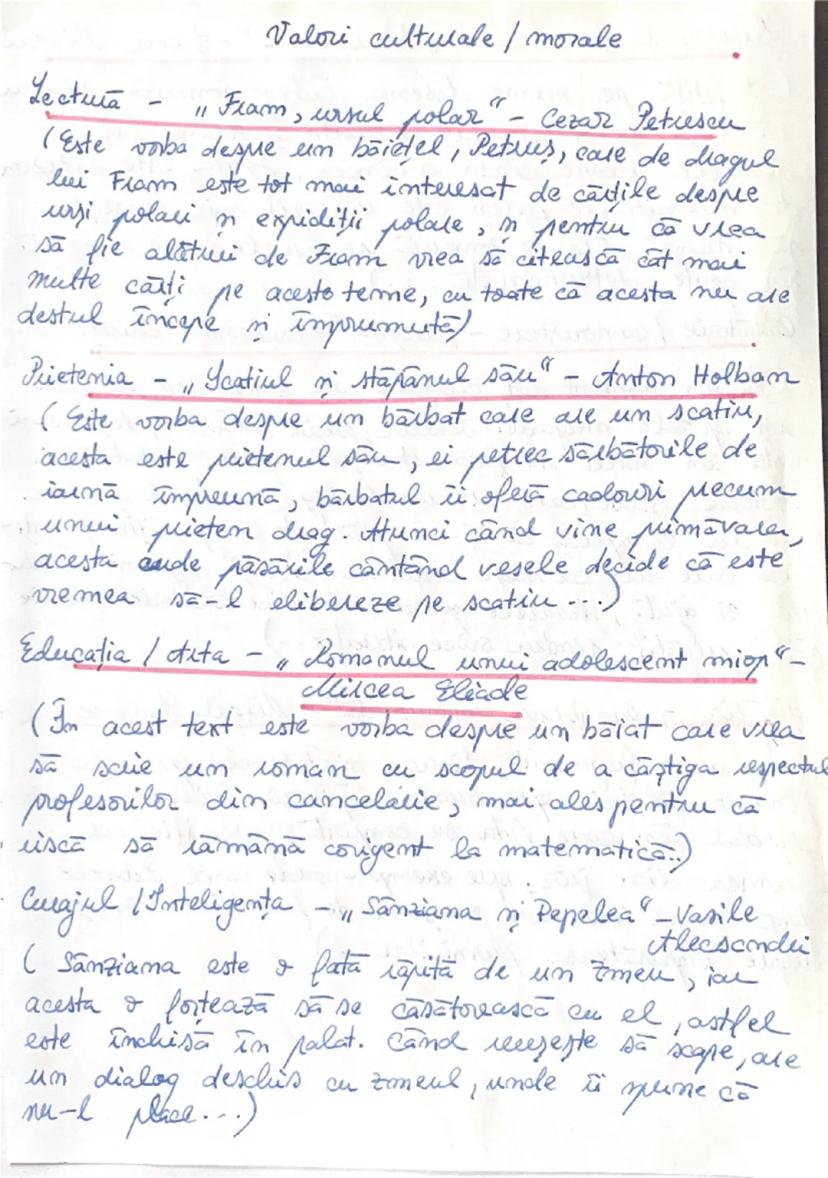 Valori culturale / morale
Lectură - „Fram, ursul polar“ - Cezar Petrescu
(Este vorba despre un băiețel, Petruș, care de dragul
lui Fram este tot mai interesat de cărțile despre
urși polari și expidiții polare, și pentru că vrea
să fie alături de Fram vrea să citească cât mai
multe cărți pe aceste teme, cu toate că acesta nu are
destul începe și împrumută)
Prietenia - „Scatiul și stăpânul său“ - Anton Holban
(Este vorba despre un bărbat care are un scatiu,
acesta este prietenul său, ei petrec sărbătorile de
iarnă împreună, bărbatul îi oferă cadouri precum
unui prieten drag. Atunci când vine primăvara,
acesta aude păsările cântând vesele decide că este
vremea să-l elibereze pe scatiu...)
Educația / Arta - „Romanul unui adolescent miop“-
Mircea Eliade
(În acest text este vorba despre un băiat care vrea
să scrie un roman cu scopul de a câștiga respectul
profesorilor din cancelarie, mai ales pentru că
riscă să rămână corigent la matematică..)
Curajul / Inteligența - „Sânziana și Pepelea“ - Vasile
Alecsandri
(Sânziana este o fată răpită de un zmeu, iar
acesta o forțează să se căsătorească cu el, astfel
este închisă în palat. Când reușește să scape, are
un dialog deschis cu zmeul, unde îi spune că
nu-l place...)